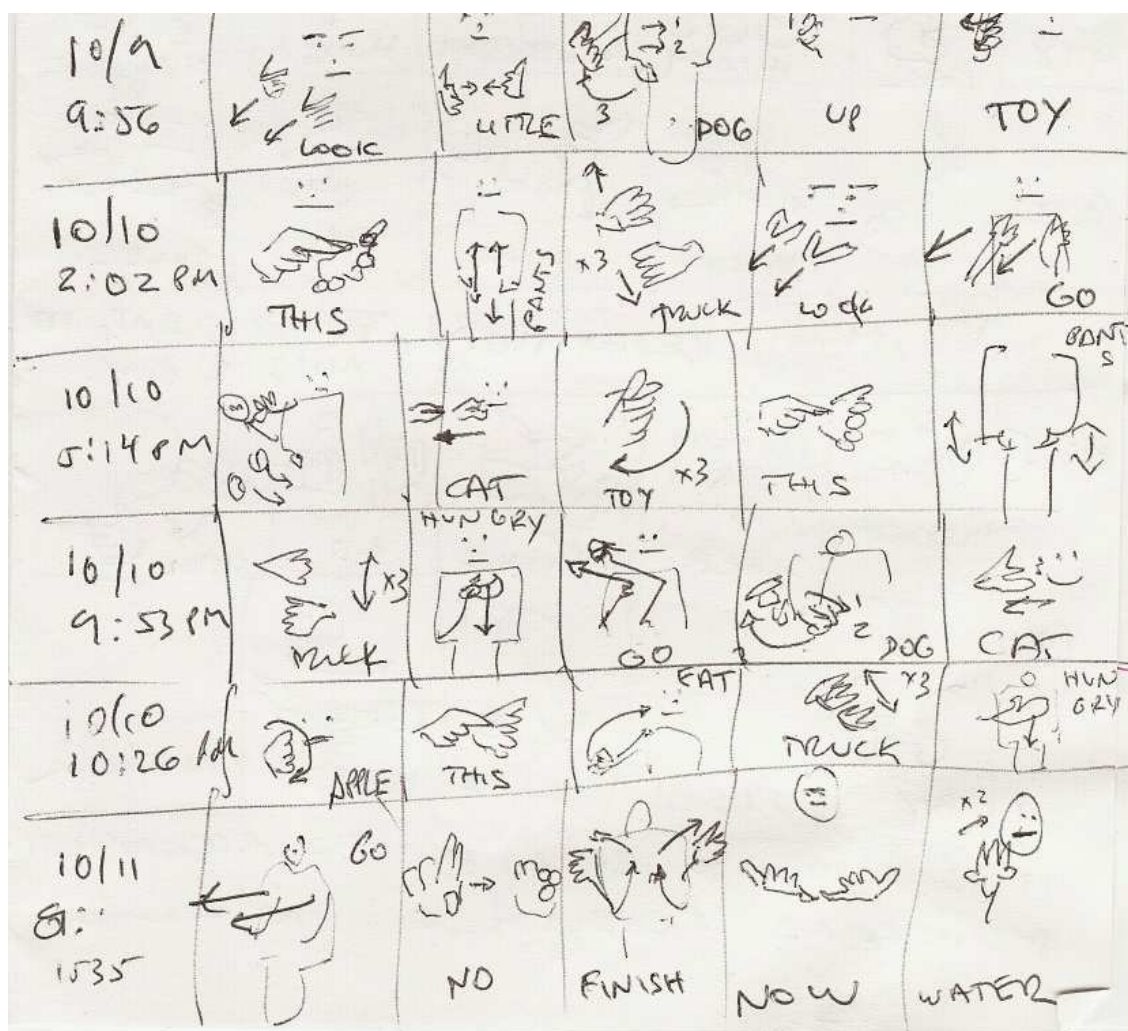 10/9
9:56
LOOK
LITTLE
1
2
3
DOG
UP
TOY
10/10
2:02 PM
THIS
PANTS
x3
TRUCK
LOOK
GO
10/10
5:14 PM
CAT
TOY
x3
THIS
PANT
S
10/10
9:53 PM
x3
TRUCK
HUNGRY
GO
1
2
3
DOG
CAT
10/10
10:26 PM
APPLE
THIS
EAT
x3
TRUCK
HUN
GRY
10/11
1535
GO
NO
FINISH
NOW
x2
WATER